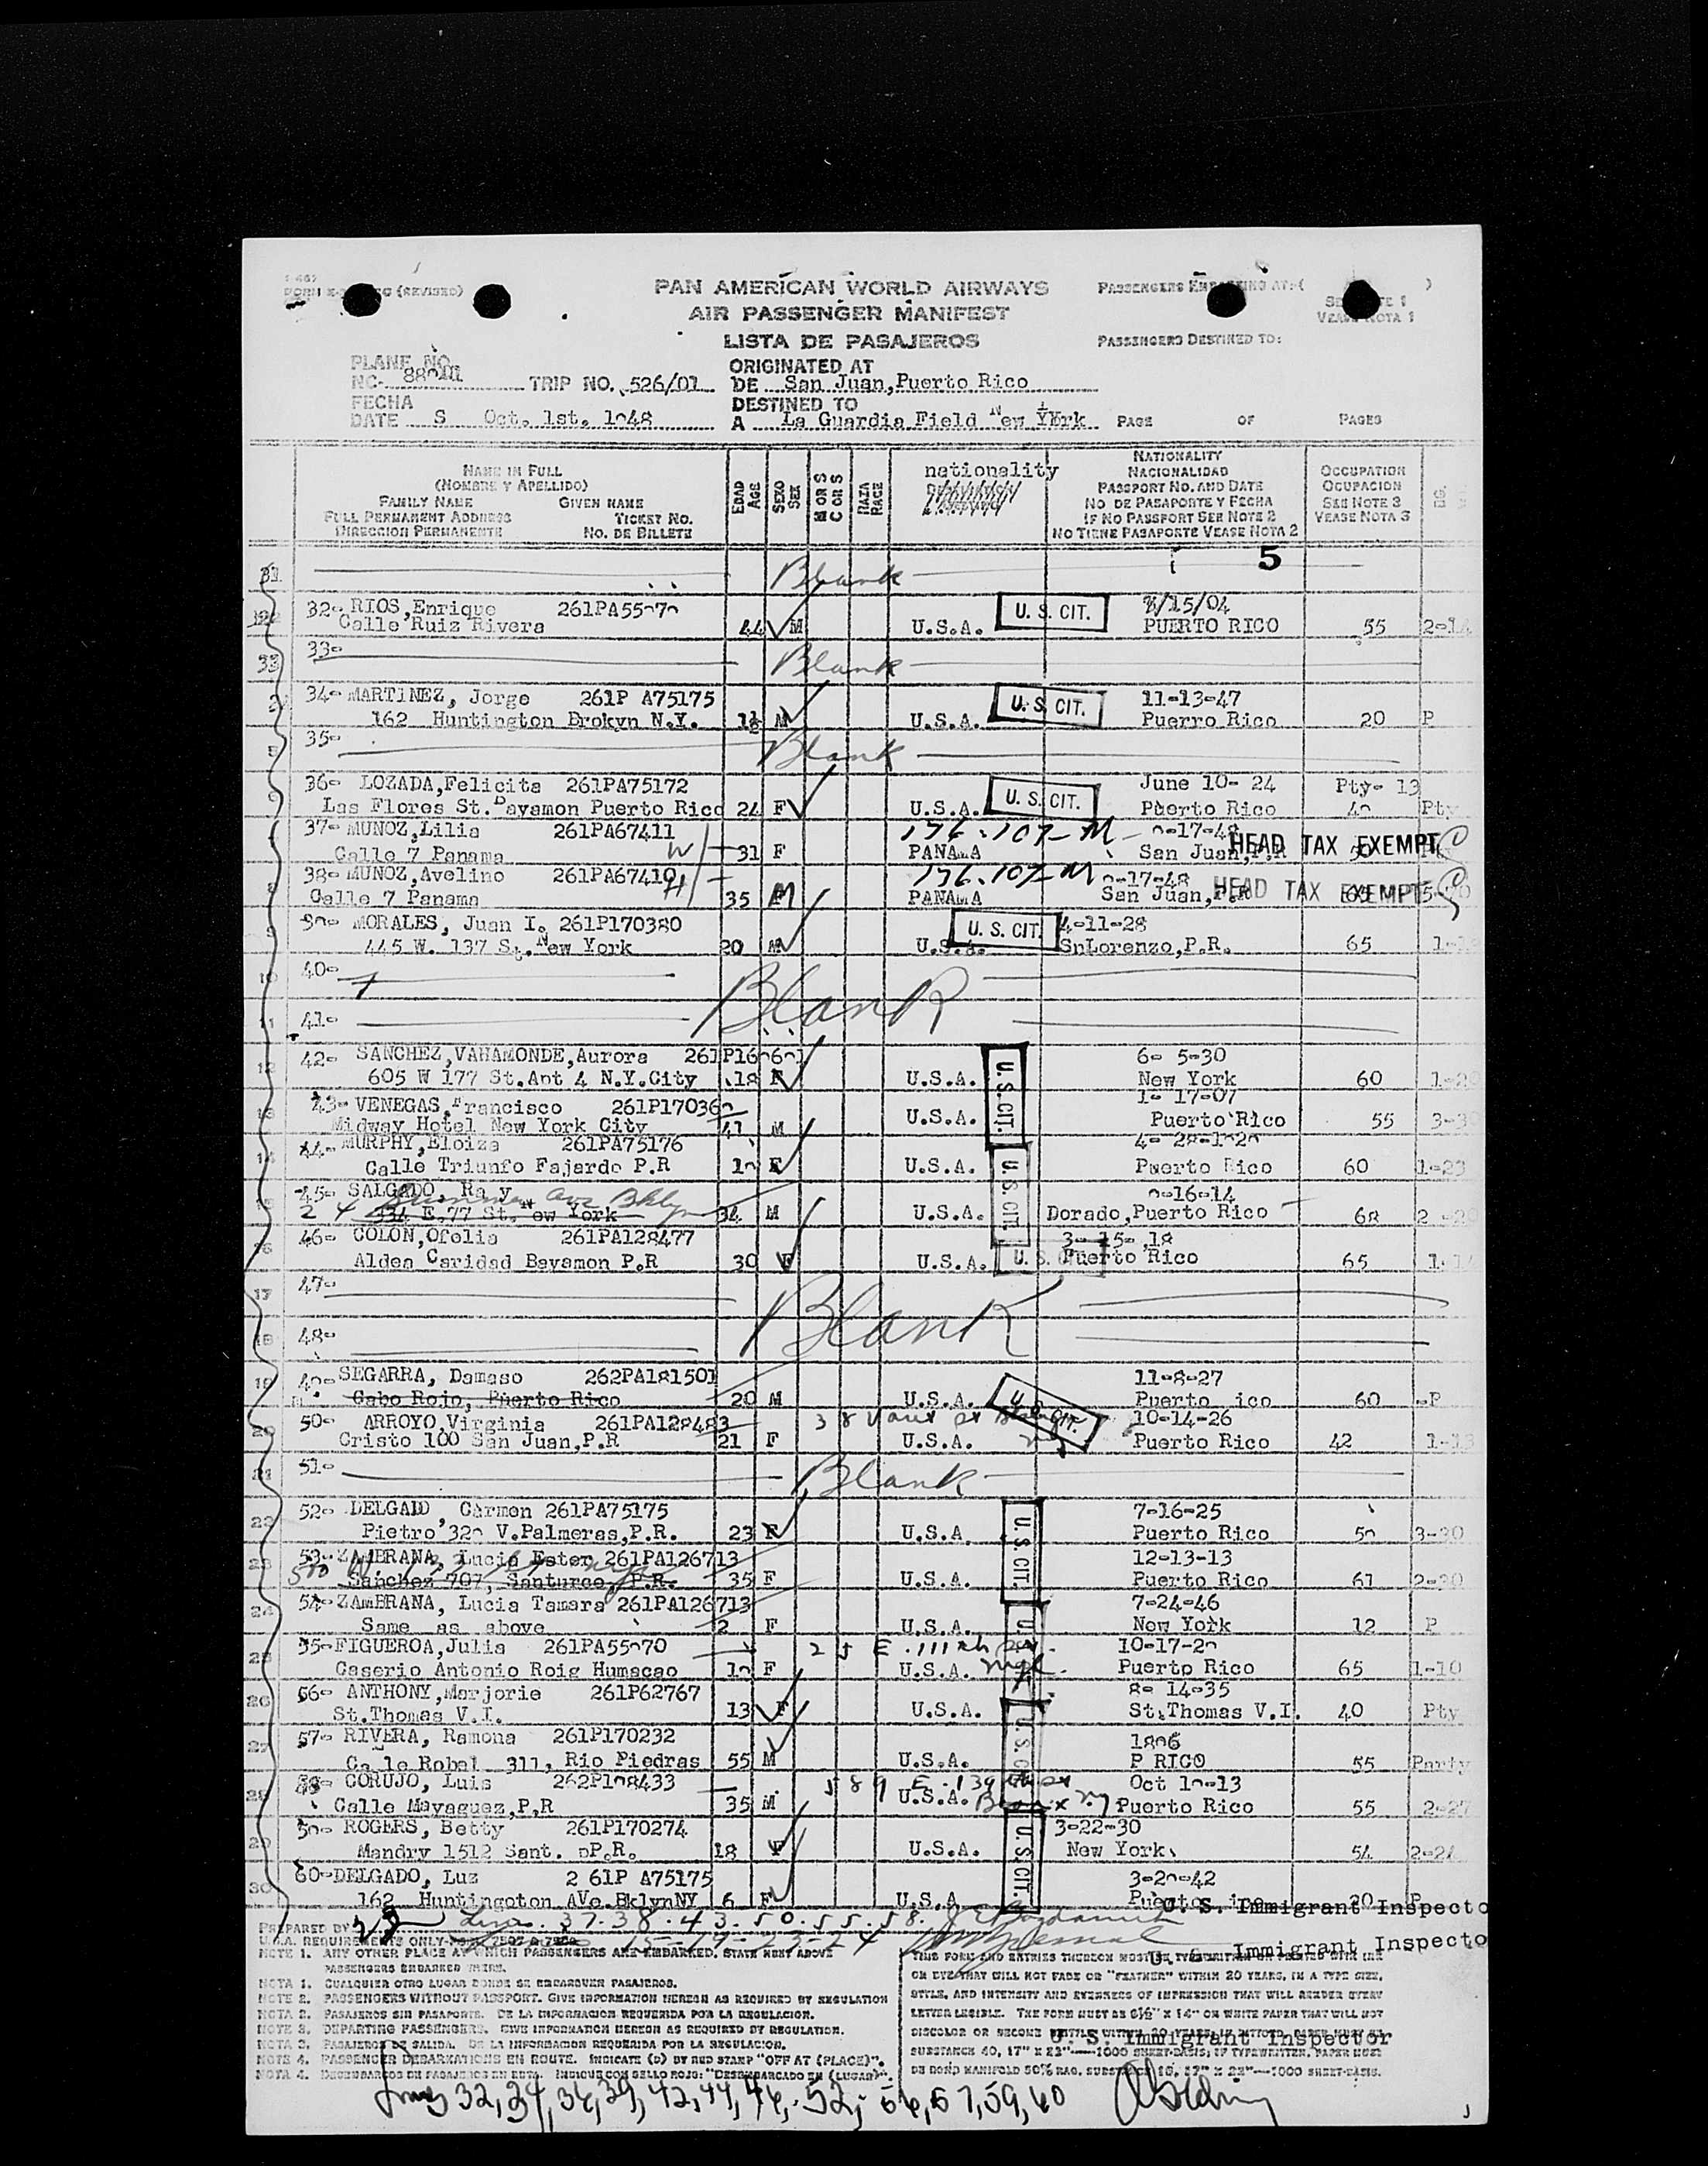 PAN AMERICAN WORLD AIRWAYS
AIR PASSENGER MANIFEST
LISTA DE PASAJEROS
(REVISED)
PASSENGERS EMBARKING AT:( )
VEASE NOTA 1
PASSENGERS DESTINED TO:
PLANE NO.
NC. TRIP NO. 526/01
ORIGINATED AT
DE San Juan,Puerto Rico
FECHA
DATE S Oct. 1st. 1948
DESTINED TO
A La Guardia Field New York PAGE OF PAGES
NAME IN FULL
(NOMBRE Y APELLIDO)
FAMILY NAME GIVEN NAME
FULL PERMANENT ADDRESS TICKET NO.
DIRECCION PERMANENTE NO. DE BILLETE
EDAD AGE
SEXO SEX
M OR S
C OR S
RAZA RACE
nationality
NATIONALITY
NACIONALIDAD
PASSPORT NO. AND DATE
NO DE PASAPORTE Y FECHA
IF NO PASSPORT SEE NOTE 2
NO TIENE PASAPORTE VEASE NOTA 2
OCCUPATION
OCUPACION
SEE NOTE 3
VEASE NOTA 3
5
31 Blank
32- RIOS,Enrique 261PA55970 U. S. CIT. 8/15/04
Calle Ruiz Rivera 44 M U.S.A. PUERTO RICO 55
33 33- Blank
34- MARTINEZ, Jorge 261P A75175 U. S. CIT. 11-13-47
162 Huntington Brokyn N.Y. 1½ M U.S.A. Puerro Rico 20 P
35- Blank
36- LOZADA,Felicita 261PA75172 U. S. CIT. June 10- 24 Pty- 13
Las Flores St. Bayamon Puerto Rico 24 F U.S.A. Puerto Rico 49 Pty
37- MUNOZ,Lilia 261PA67411 176.107-M 9-17-48 HEAD TAX EXEMPT
Calle 7 Panama W/ 31 F PANAMA San Juan,P.R
38- MUNOZ,Avelino 261PA67410 176.107-M 9-17-48 HEAD TAX EXEMPT
Calle 7 Panama H/ 35 M PANAMA San Juan,P.R
39- MORALES, Juan I. 261P170380 U. S. CIT. 4-11-28
445 W. 137 St. New York 20 M U.S.A. SnLorenzo,P.R. 65
40-
Blank
41-
42- SANCHEZ,VAHAMONDE,Aurora 261P169691 U. S. CIT. 6- 5-30
605 W 177 St.Apt 4 N.Y.City 18 F U.S.A. New York 60
43- VENEGAS,Francisco 261P170369 1- 17-07
Midway Hotel New York City 41 M U.S.A. Puerto Rico 55
44- MURPHY,Eloiza 261PA75176 U. S. CIT. 4- 28-1929
Calle Triunfo Fajardo P.R 19 F U.S.A. Puerto Rico 60 1-23
45- SALGADO, Ra y 9-16-14
334 E.77 St. New York 34 M U.S.A. Dorado,Puerto Rico 68
46- COLON,Ofelia 261PA128477 3- 15- ,18
Aldea Caridad Bayamon P.R 30 F U.S.A. U. S. CIT. Puerto Rico 65
47-
Blank
48-
49-SEGARRA, Damaso 262PA181501 U. S. CIT. 11-8-27
Cabo Rojo, Puerto Rico 20 M U.S.A. Puerto ico 60 P
50- ARROYO,Virginia 261PA128483 10-14-26
Cristo 100 San Juan,P.R 21 F U.S.A. Puerto Rico 42
51- Blank
52- DELGADO, Carmen 261PA75175 U. S. CIT. 7-16-25
Pietro 329 V.Palmeras,P.R. 23 F U.S.A Puerto Rico 59 3-30
53-ZAMBRANA, Lucia Ester 261PA126713 12-13-13
Sanchez 707, Santurce, P.R. 35 F U.S.A. Puerto Rico 61 2-30
54-ZAMBRANA, Lucia Tamara 261PA126713 7-24-46
Same as above 2 F U.S.A. New York 12 P
55-FIGUEROA,Julia 261PA55970 25 E. 111th St. 10-17-29
Caserio Antonio Roig Humacao 19 F U.S.A. Puerto Rico 65 1-10
56- ANTHONY,Marjorie 261P62767 8- 14-35
St.Thomas V.I. 13 F U.S.A. St.Thomas V.I. 40 Pty
57- RIVERA, Ramona 261P170232 1896
Ca le Robal 311, Rio Piedras 55 M U.S.A. P RICO 55 Party
58- CORUJO, Luis 262P198433 589 E. 139 Oct 19-13
Calle Mayaguez,P,R 35 M U.S.A. Bronx NY Puerto Rico 55 2-27
59- ROGERS, Betty 261P170274 U. S. CIT. 3-22-30
Mandry 1512 Sant. P.R. 18 F U.S.A. New York 54
60-DELGADO, Luz 2 61P A75175 3-29-42
162 Huntingoton AVe.BklynNY 6 F U.S.A 20 P
U. S. Immigrant Inspecto
PREPARED BY Lines. 37.38.43.50.55.58.
U. S. Immigrant Inspecto
NOTE 1. ANY OTHER PLACE AT WHICH PASSENGERS ARE EMBARKED, STATE NEXT ABOVE
PASSENGERS EMBARKED THERE.
NOTA 1. CUALQUIER OTRO LUGAR DONDE SE EMBARQUEN PASAJEROS.
NOTE 2. PASSENGERS WITHOUT PASSPORT. GIVE INFORMATION HEREON AS REQUIRED BY REGULATION
NOTA 2. PASAJEROS SIN PASAPORTE. DE LA INFORMACION REQUERIDA POR LA REGULACION.
NOTE 3. DEPARTING PASSENGERS. GIVE INFORMATION HEREON AS REQUIRED BY REGULATION.
NOTA 3. PASAJEROS DE SALIDA. DE LA INFORMACION REQUERIDA POR LA REGULACION.
NOTE 4. PASSENGER DEBARKATIONS EN ROUTE. INDICATE (D) BY RED STAMP "OFF AT (PLACE)".
NOTA 4. DESEMBARCOS DE PASAJEROS EN RUTA. INDIQUE CON SELLO ROJO: "DESEMBARCADO EN (LUGAR)".
THIS FORM AND ENTRIES THEREON MUST BE TYPEWRITTEN OR PRINTED WITH INK
OR DYE THAT WILL NOT FADE OR "FEATHER" WITHIN 20 YEARS, IN A TYPE SIZE,
STYLE, AND INTENSITY AND EVENNESS OF IMPRESSION THAT WILL RENDER EVERY
LETTER LEGIBLE. THE FORM MUST BE 8½" X 14" ON WHITE PAPER THAT WILL NOT
U. S. Immigrant Inspector
SUBSTANCE 40, 17" X 22"—1000 SHEET-BASIS; IF TYPEWRITTEN, PAPER MUST
BE BOND MANIFOLD 50% RAG, SUBSTANCE 16, 17" X 22"—1000 SHEET-BASIS.
32,34,36,39,42,44,46,52,56,57,59,60